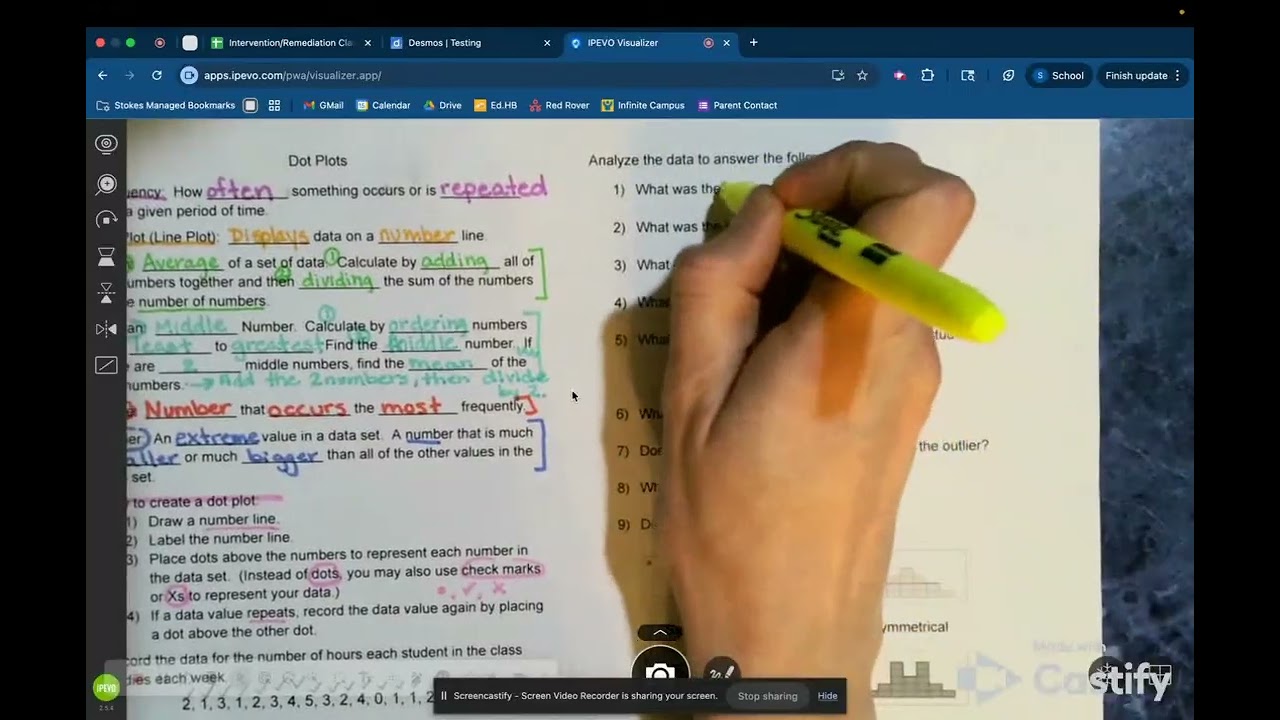 Intervention/Remediation Cla
Desmos | Testing
IPEVO Visualizer
apps.ipevo.com/pwa/visualizer.app/
S School
Finish update
Stokes Managed Bookmarks
GMail
Calendar
Drive
Ed.HB
Red Rover
Infinite Campus
Parent Contact
Dot Plots
uency: How often something occurs or is repeated
a given period of time.
lot (Line Plot): Displays data on a number line
Average of a set of data ① Calculate by adding all of
umbers together and then ② dividing the sum of the numbers
e number of numbers.
an Middle Number. Calculate by ordering numbers
least to greatest Find the middle number. If
are 2 middle numbers, find the mean of the
numbers. → Add the 2 numbers, then divide
by 2.
Number that occurs the most frequently.
er) An extreme value in a data set. A number that is much
aller or much bigger than all of the other values in the
set.
to create a dot plot:
1) Draw a number line.
2) Label the number line.
3) Place dots above the numbers to represent each number in
the data set. (Instead of dots, you may also use check marks
or Xs to represent your data.)
4) If a data value repeats, record the data value again by placing
a dot above the other dot.
cord the data for the number of hours each student in the class
dies each week
2, 1, 3, 1, 2, 3, 4, 5, 3, 2, 4, 0, 1, 1, 2
Analyze the data to answer the foll
1) What was the
2) What was the
3) What
4) What
5) What
6) Wh
7) Doe
the outlier?
8) Wh
9) D
ymmetrical
Sharpie
IPEVO
2.5.4
Screencastify - Screen Video Recorder is sharing your screen.
Stop sharing
Hide
Made with
Castify